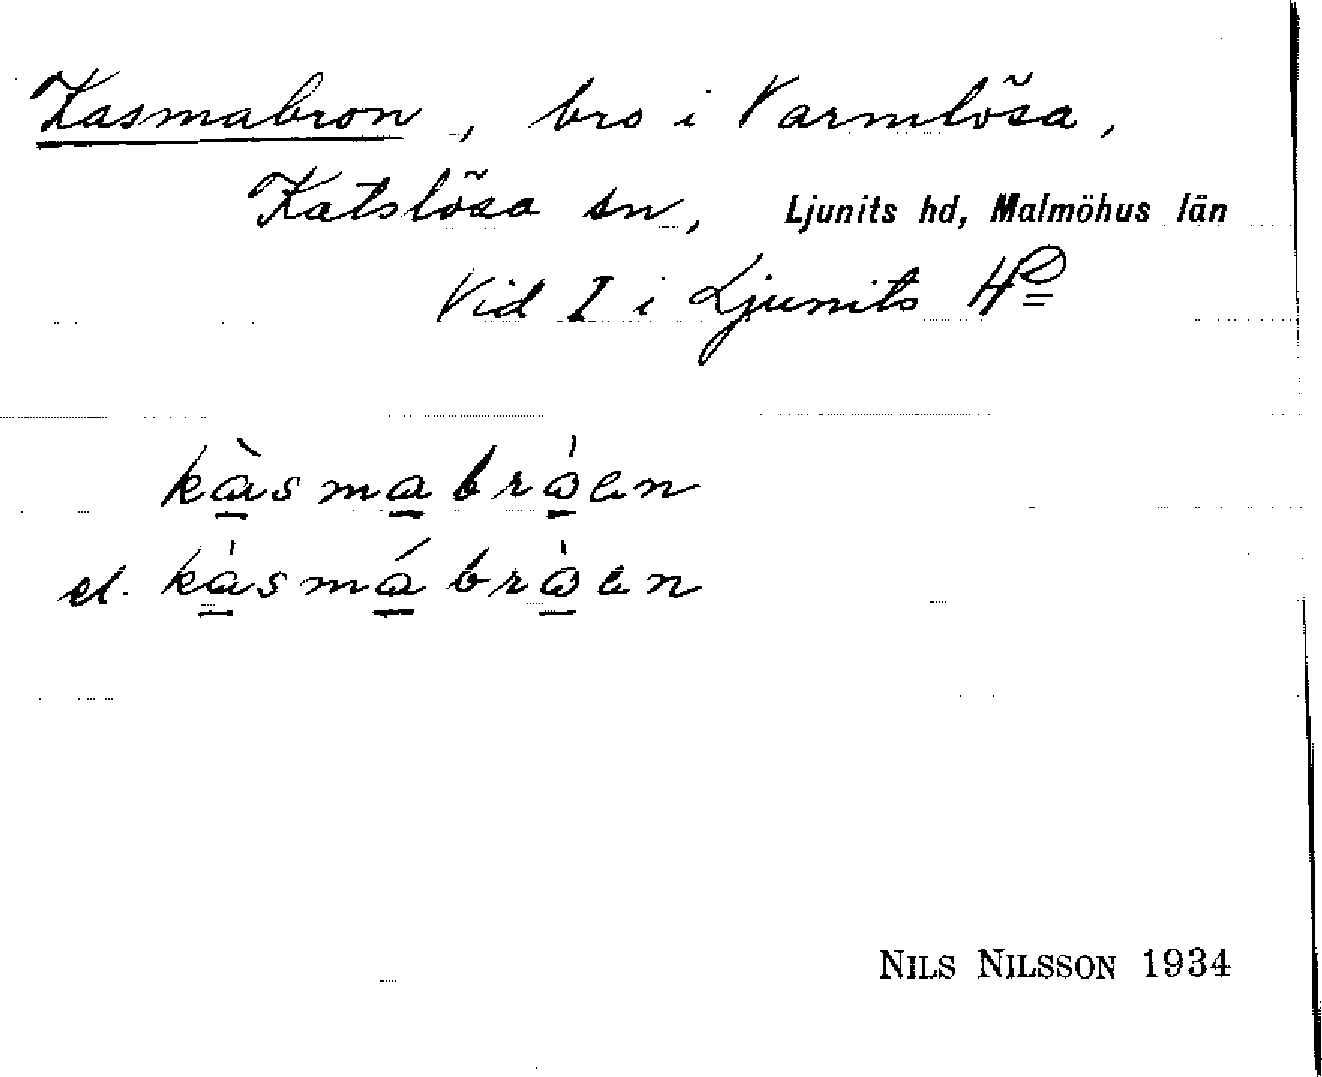 Kasmabron, bro i Varmlösa,
Katslösa sn, Ljunits hd, Malmöhus län
Vid I i Ljunits Hd
kàsmabråen
el. kàsmábråen
NILS NILSSON 1934